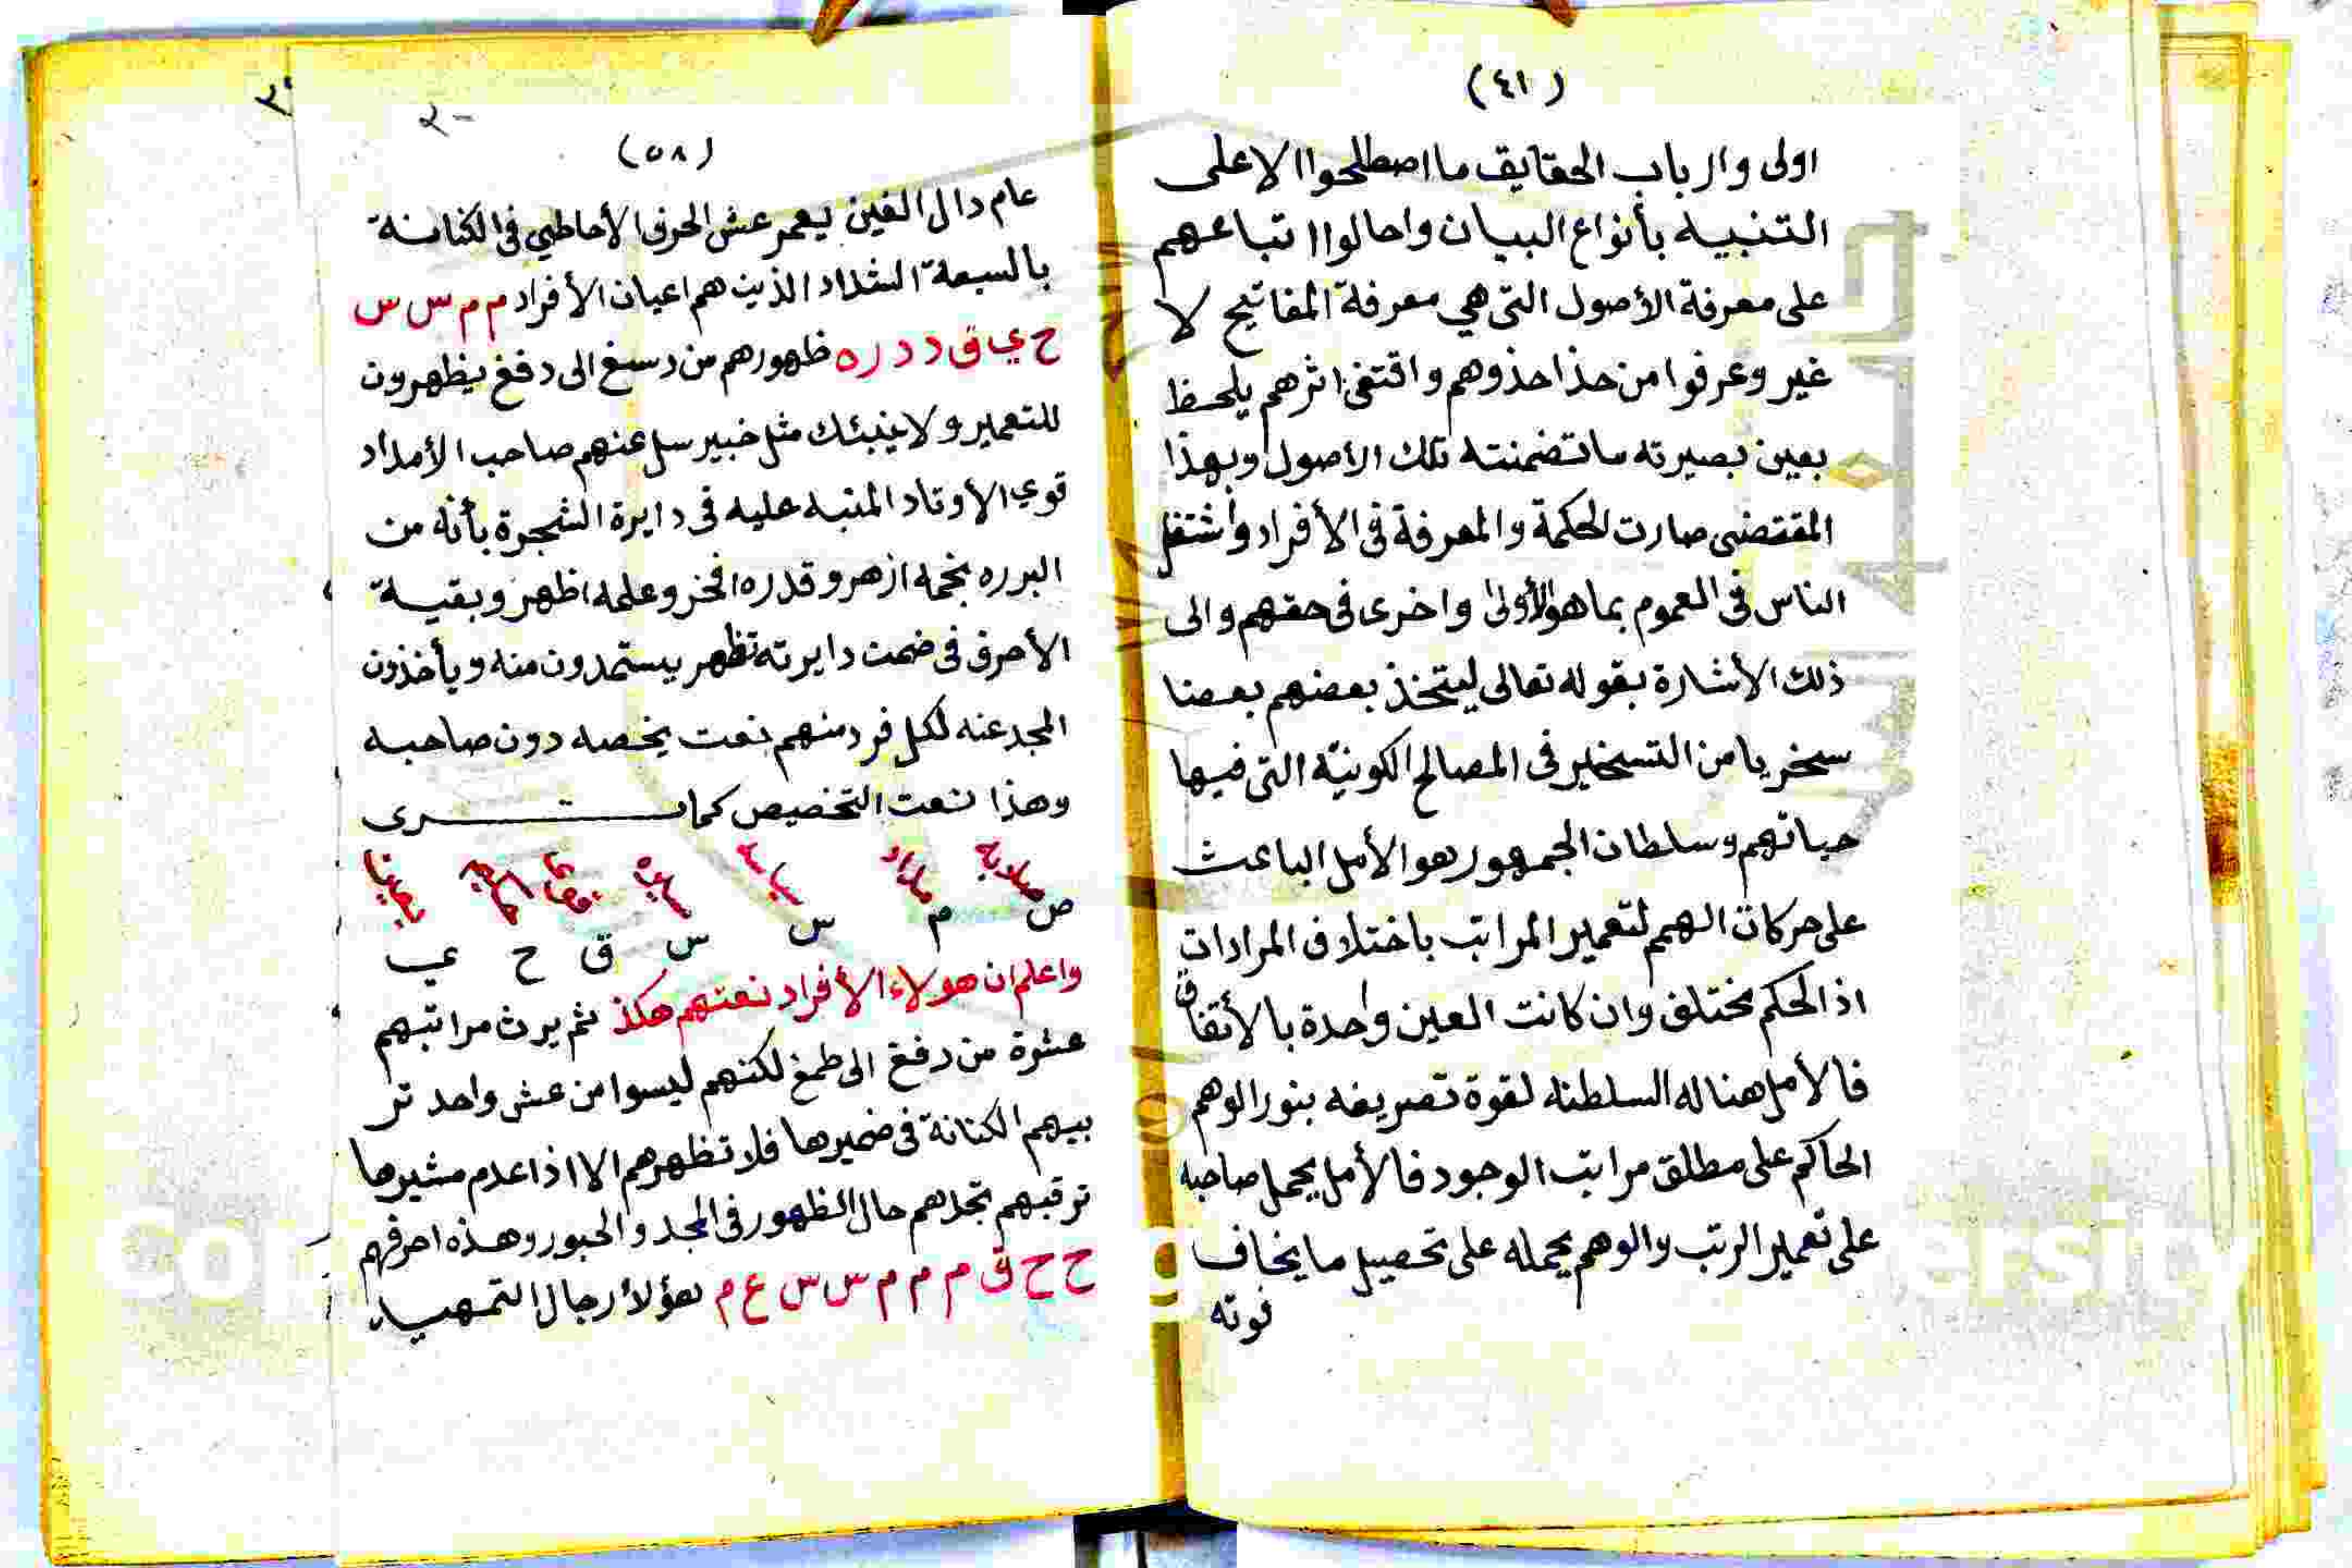 (٤١)
اولى وارباب الحقايق ما اصطلحوا الا على
التنبيه بأنواع البيان واحالوا اتباعهم
على معرفة الأصول التى هي معرفة المفاتيح لا
غير وعرفوا من حذا حذوهم واقتفى اثرهم يلحظ
بعين بصيرته ما تضمنته تلك الاصول وبهذا
المقتضى صارت الحكمة والمعرفة فى الأفراد واشتغل
الناس فى العموم بما هو الأولى واخرى فى حقهم والى
ذلك الأشارة بقوله تعالى ليتخذ بعضهم بعضا
سخريا من التسخير فى المصالح الكونية التى فيها
حياتهم وسلطان الجمهور هو الأمل الباعث
على حركات الهمم لتعمير المراتب باختلاف المرادات
اذ الحكم مختلف وان كانت العين واحدة بالأتفاق
فالأمل هنا له السلطنه لقوة تصريفه بنور الوهم
الحاكم على مطلق مراتب الوجود فالأمل يحمل صاحبه
على تعمير الرتب والوهم يحمله على تحصيل ما يخاف
فوته
(٥٨)
عام دال الغين يعمر عش الحرف الأحاطي فى الكنانة
بالسبعة الشداد الذين هم اعيان الأفراد م م س س
ح ي ق د د ر ه ظهورهم من دسغ الى دفغ يظهرون
للتعمير ولا ينبئك مثل خبير سل عنهم صاحب الأمداد
قوي الأوتاد المنبه عليه فى دايرة الشجرة بأنه من
البرره نجمه ازهر وقدره افخر وعلمه اظهر وبقية
الأحرف فى ضمن دايرته تظهر يستمدون منه ويأخذون
المجد عنه لكل فرد منهم نعت يخصه دون صاحبه
وهذا نعت التخصيص كما ترى
ص م س س ق ح ي
واعلم ان هولاء الأفراد نعتهم هكذ ثم يرث مراتبهم
عشرة من دفغ الى طمغ لكنهم ليسوا من عش واحد تر
بيهم الكنانة فى ضميرها فلا تظهرهم الا اذا عدم مشيرها
ترقبهم تجدهم حال الظهور فى المجد والحبور وهذه احرفهم
ح ح ق م م م س س ع م هؤلأ رجال التمهيد